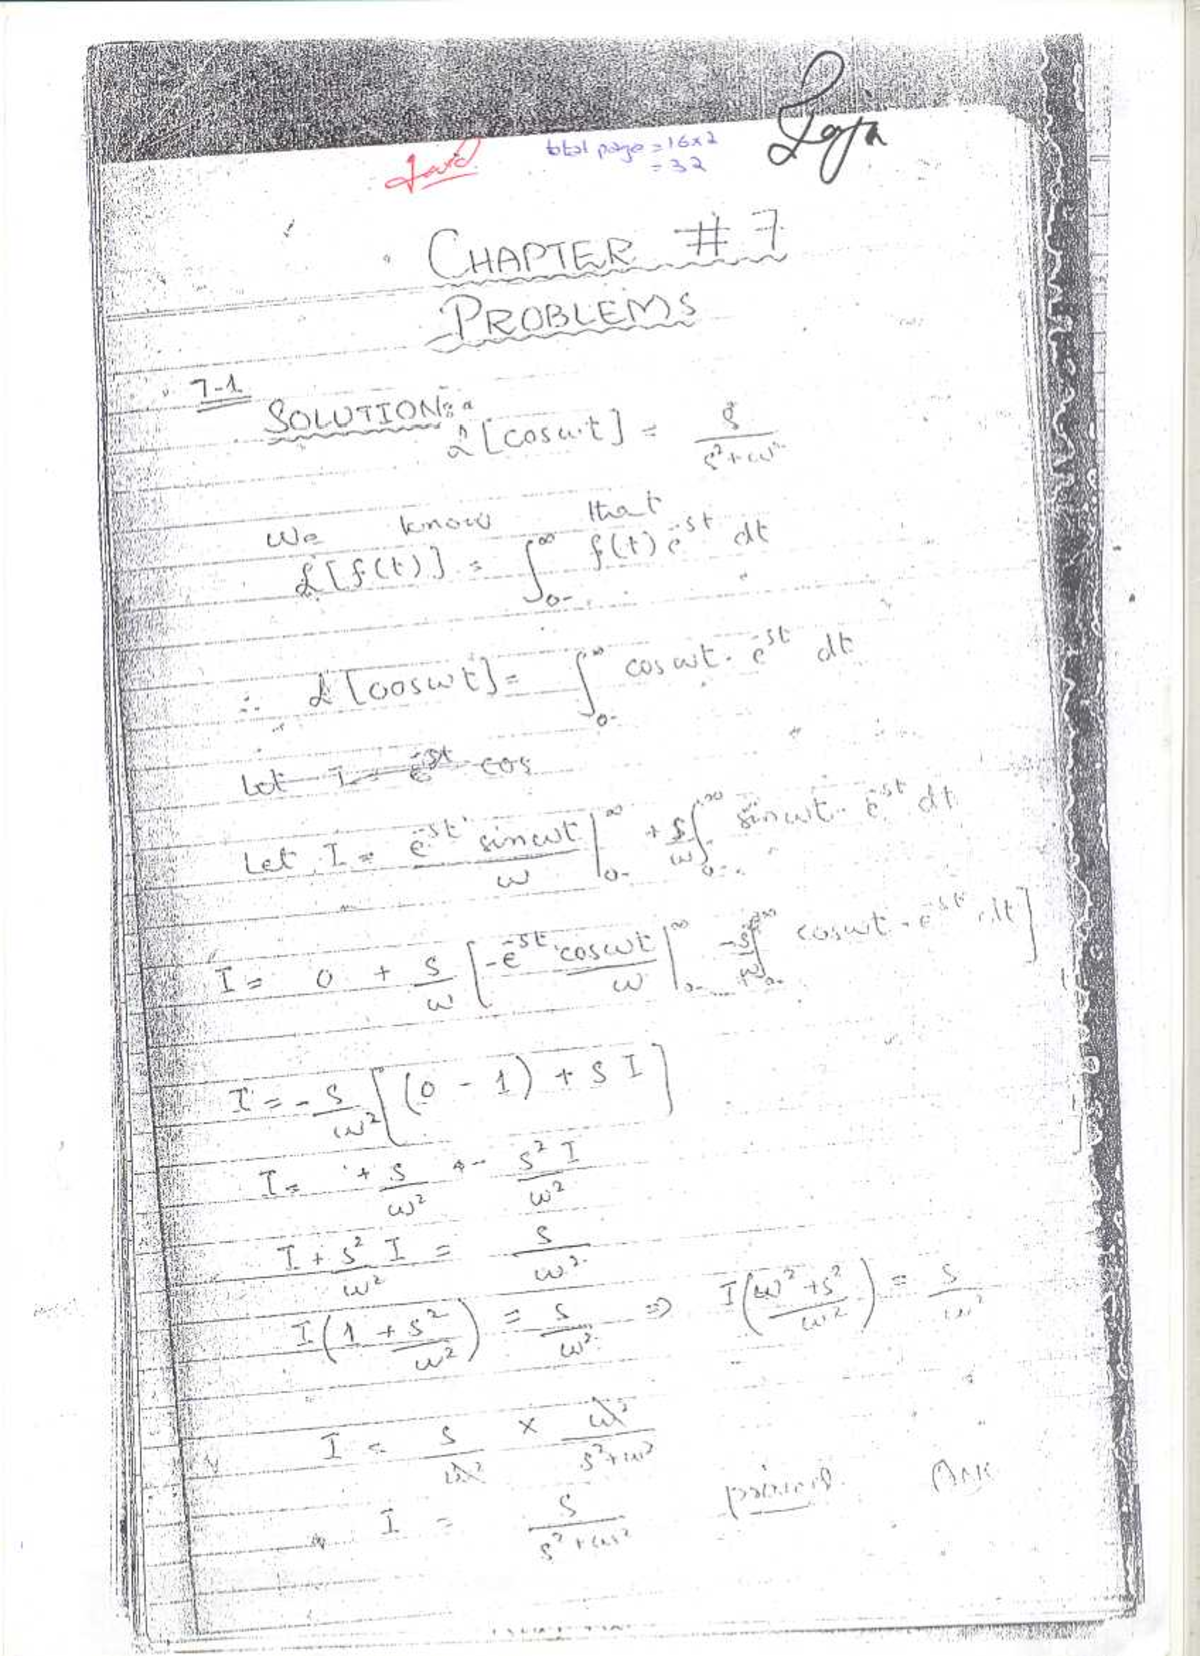 total page = 16x2
= 32
CHAPTER # 7
PROBLEMS
7-1
SOLUTION:
£[cosωt] = s / (s²+ω²)
We know that
£[f(t)] = ∫₀₋^∞ f(t) e^-st dt
∴ £[cosωt] = ∫₀₋^∞ cosωt · e^-st dt
Let I = e^-st cos
Let I = e^-st · sinωt / ω |₀₋^∞ + s/ω ∫₀₋^∞ sinωt · e^-st dt
I = 0 + s/ω [ -e^-st · cosωt / ω |₀₋^∞ - s/ω ∫₀₋^∞ cosωt · e^-st dt ]
I = - s/ω² [ (0 - 1) + s I ]
I = + s/ω² + - s² I / ω²
I + s²/ω² I = s/ω²
I (1 + s²/ω²) = s/ω² ⇒ I ((ω² + s²)/ω²) = s/ω²
I = s/ω² × ω²/(s²+ω²)
I = s/(s²+ω²)